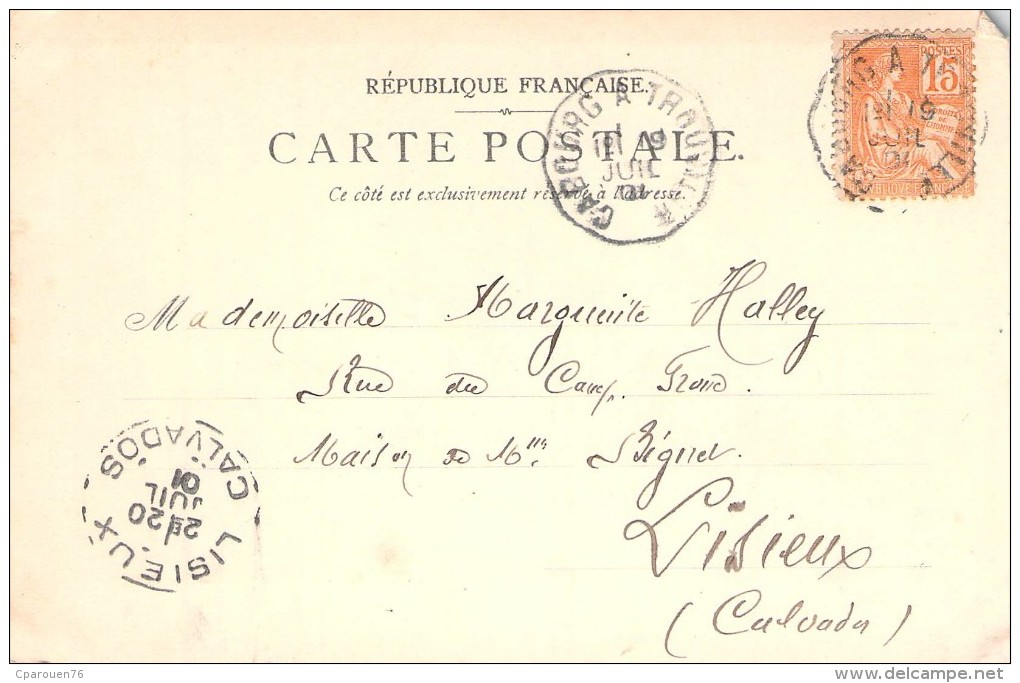 RÉPUBLIQUE FRANÇAISE.
CARTE POSTALE.
Ce côté est exclusivement réservé à l'Adresse.
POSTES
15
DROITS DE L'HOMME
CABOURG A TROUVILLE
19
JUIL
01
CABOURG A TROUVILLE
19
JUIL
01
Mademoiselle Marguerite Halley
Rue du Camp. Franc.
Maison de Mme. Bignet.
Lisieux
(Calvados)
LISIEUX
CALVADOS
2E 20
JUIL
01
Cparouen76
delcampe.net